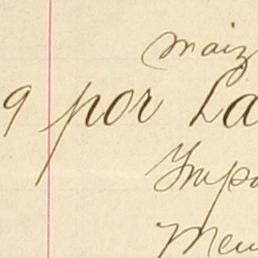 maiz
9 por La
Impo
Men